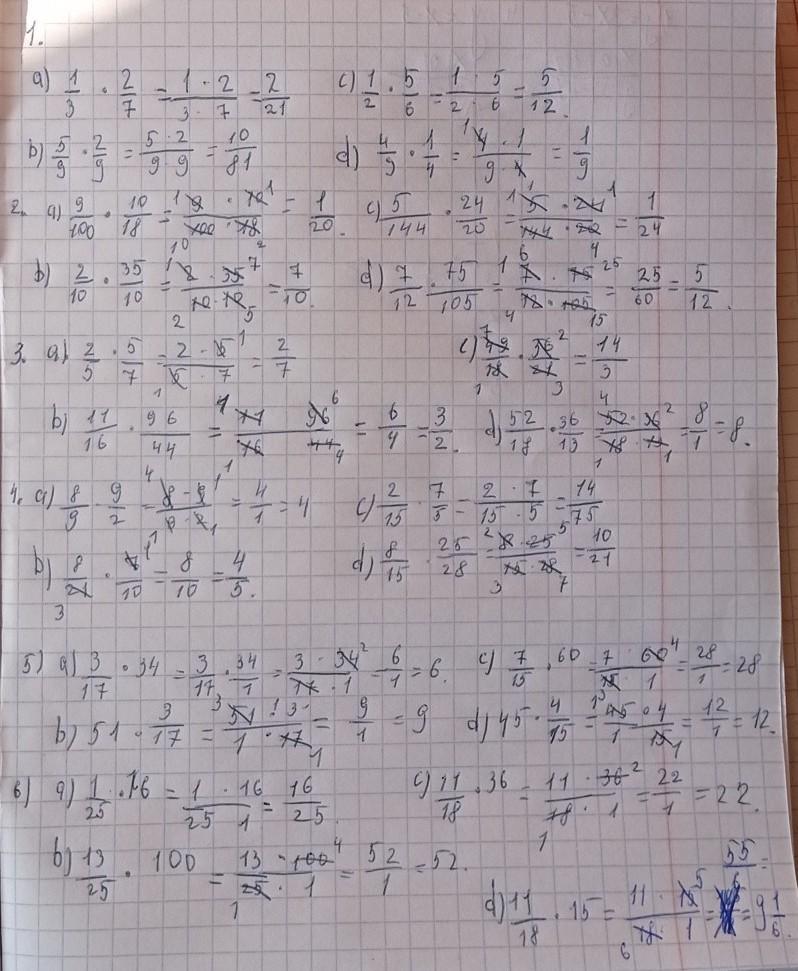 1.
a) 1/3 · 2/7 = 1 · 2/3 · 7 = 2/21 c) 1/2 · 5/6 = 1 · 5/2 · 6 = 5/12.
b) 5/9 · 2/9 = 5 · 2/9 · 9 = 10/81 d) 4/9 · 1/4 = 4 · 1/9 · 4 = 1/9
2. a) 9/100 · 10/18 = 9 · 10/100 · 18 = 1/20. c) 5/144 · 24/20 = 5 · 24/144 · 20 = 1/24
b) 2/10 · 35/10 = 2 · 35/10 · 10 = 7/10. d) 7/12 · 75/105 = 7 · 75/12 · 105 = 25/60 = 5/12.
3. a) 2/5 · 5/7 = 2 · 5/5 · 7 = 2/7 c) 49/18 · 36/21 = 14/3
b) 11/16 · 96/44 = 11 96/16 44 = 6/4 = 3/2. d) 52/18 · 36/13 = 52 · 36/18 · 13 = 8/1 = 8.
4. a) 8/9 · 9/2 = 8 · 9/9 · 2 = 4/1 = 4 c) 2/15 · 7/5 = 2 · 7/15 · 5 = 14/75
b) 8/21 · 7/10 = 8/10 = 4/5. d) 8/15 · 25/28 = 8 · 25/15 · 28 = 10/21
5) a) 3/17 · 34 = 3/17 · 34/1 = 3 · 34/17 · 1 = 6/1 = 6. c) 7/15 · 60 = 7 · 60/15 1 = 28/1 = 28
b) 51 · 3/17 = 51 · 3/1 · 17 = 9/1 = 9 d) 45 · 4/15 = 45 · 4/1 · 15 = 12/1 = 12.
6) a) 1/25 · 16 = 1 · 16/25 1 = 16/25. c) 11/18 · 36 = 11 · 36/18 · 1 = 22/1 = 22.
b) 13/25 · 100 = 13 · 100/25 · 1 = 52/1 = 52.
d) 11/18 · 15 = 11 · 15/18 · 1 = 55/6 = 9 1/6.